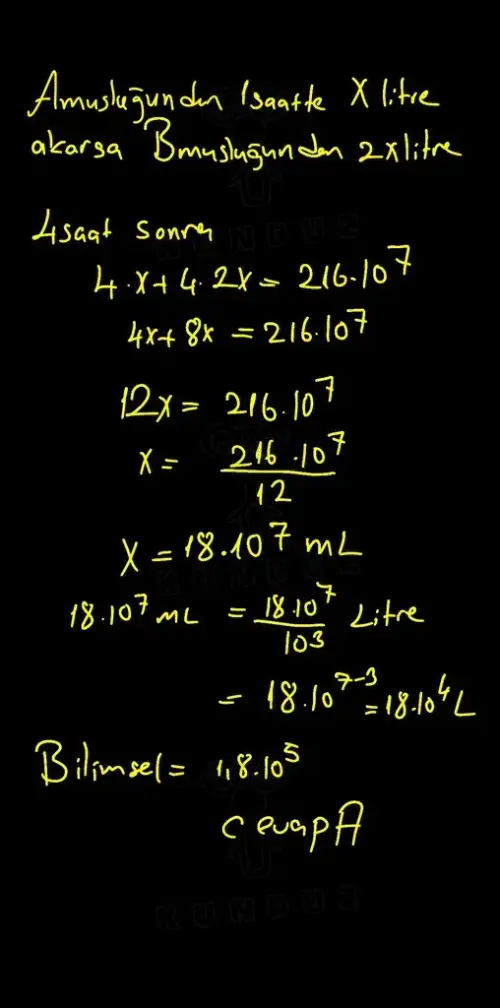 A musluğundan 1 saatte X litre
akarsa B musluğundan 2x litre
4 saat sonra
4.x+4.2x = 216.10⁷
4x+8x = 216.10⁷
12x = 216.10⁷
x = 216.10⁷ / 12
X = 18.10⁷ mL
18.10⁷ mL = 18.10⁷ / 10³ Litre
= 18.10⁷⁻³ = 18.10⁴ L
Bilimsel = 1,8.10⁵
Cevap A
KUNDUZ